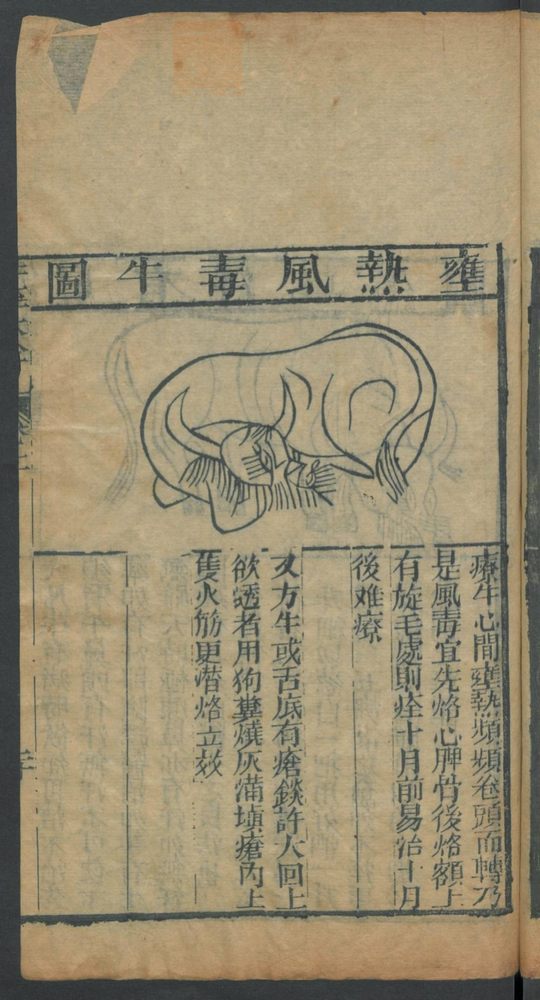 壅熱風毒牛圖
療牛心間壅熱頻頻卷頭而轉乃
是風毒宜先烙心脾骨後烙額上
有旋毛處則痊十月前易治十月
後难療
又方牛或舌底有瘡錢許大回上
欲透者用狗糞燒灰滿塡瘡內上
隻火筋更潜烙立效